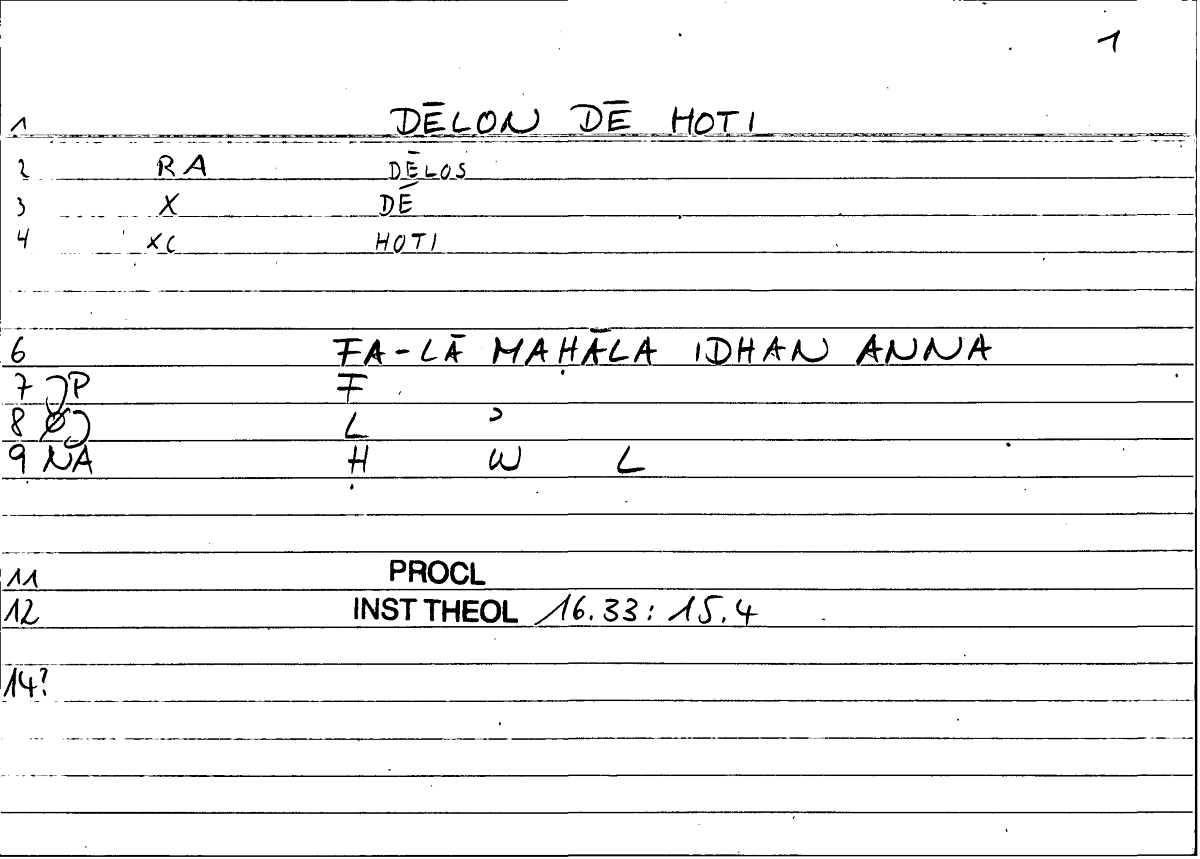 1
1 DĒLON DĒ HOTI
2 RA DĒLOS
3 X DĒ
4 XC HOTI
6 FA-LĀ MAḤĀLA IDHAN ANNA
7 P F
8 L
9 NA Ḥ W L
11 PROCL
12 INST THEOL 16.33: 15.4
14?